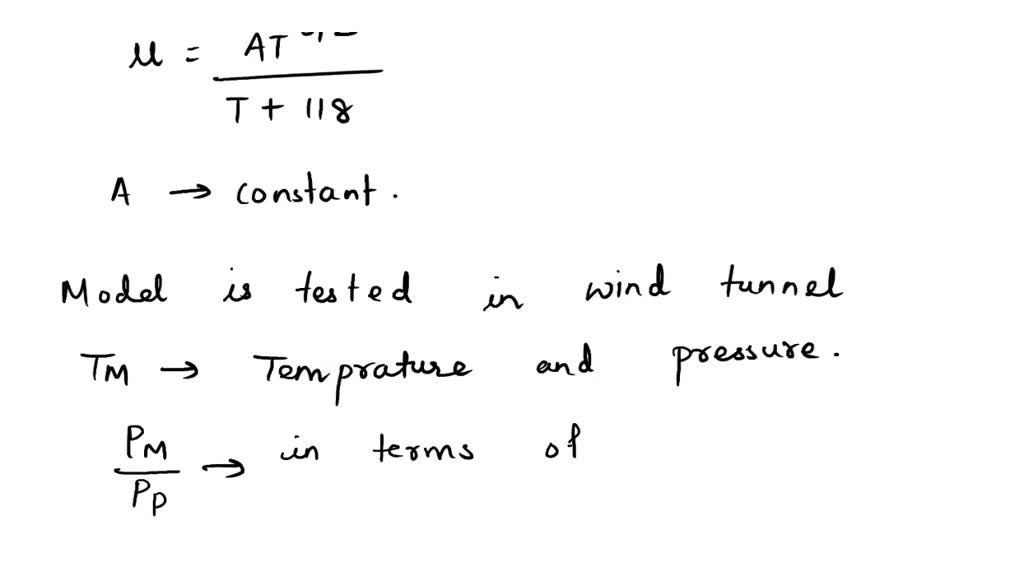 μ = AT
T + 118
A → constant.
Model is tested in wind tunnel
TM → Temprature and pressure.
PM/PP → in terms of